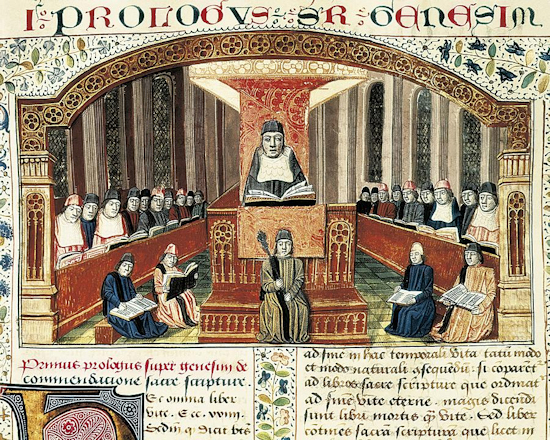 I· PROLOGVS· SR· GENESIM
Primus prologus super genesim de
commendacione sacre scripture.
Ec omnia liber
vite. Ecc.
Sedm q dicit bts
ad fine in hac temporali vita tatumodo
et modo naturali gsequedu. si coparet
ad libros sacre scripture que ordinat
ad fine vite eterne. magis dicendi
sunt libri mortis q̄ vite. Sed liber
cotines sacra scriptura que licet in